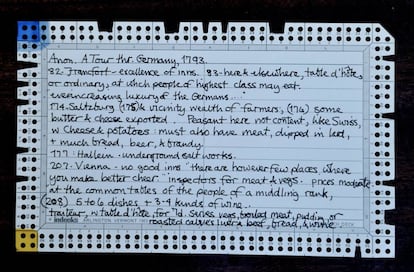 Anon. A Tour thr. Germany, 1793.
82. Francfort - excellence of inns. 83 - here & elsewhere, table d'hôte,
or ordinary, at which people of highest class may eat.
ever increasing luxury of the Germans...
174. Saltzburg (175) & vicinity, wealth of farmers; (176) some
butter & cheese exported. Peasant here not content, like Swiss,
w cheese & potatoes: must also have meat, dipped in lard,
+ much bread, beer, & brandy.
177. Hallein - underground salt works.
207. Vienna - no good inns. There are however few places, where
you make better cheer. Inspectors for meat & vegs. prices moderate
at the common tables of the people of a middling rank,
(208) 5 to 6 dishes + 3-4 kinds of wine...
traiteur, w table d'hôte for 7d. serves vegs, boiled meat, pudding or
roasted calves liver & beef, bread, & wine
indecks ARLINGTON, VERMONT